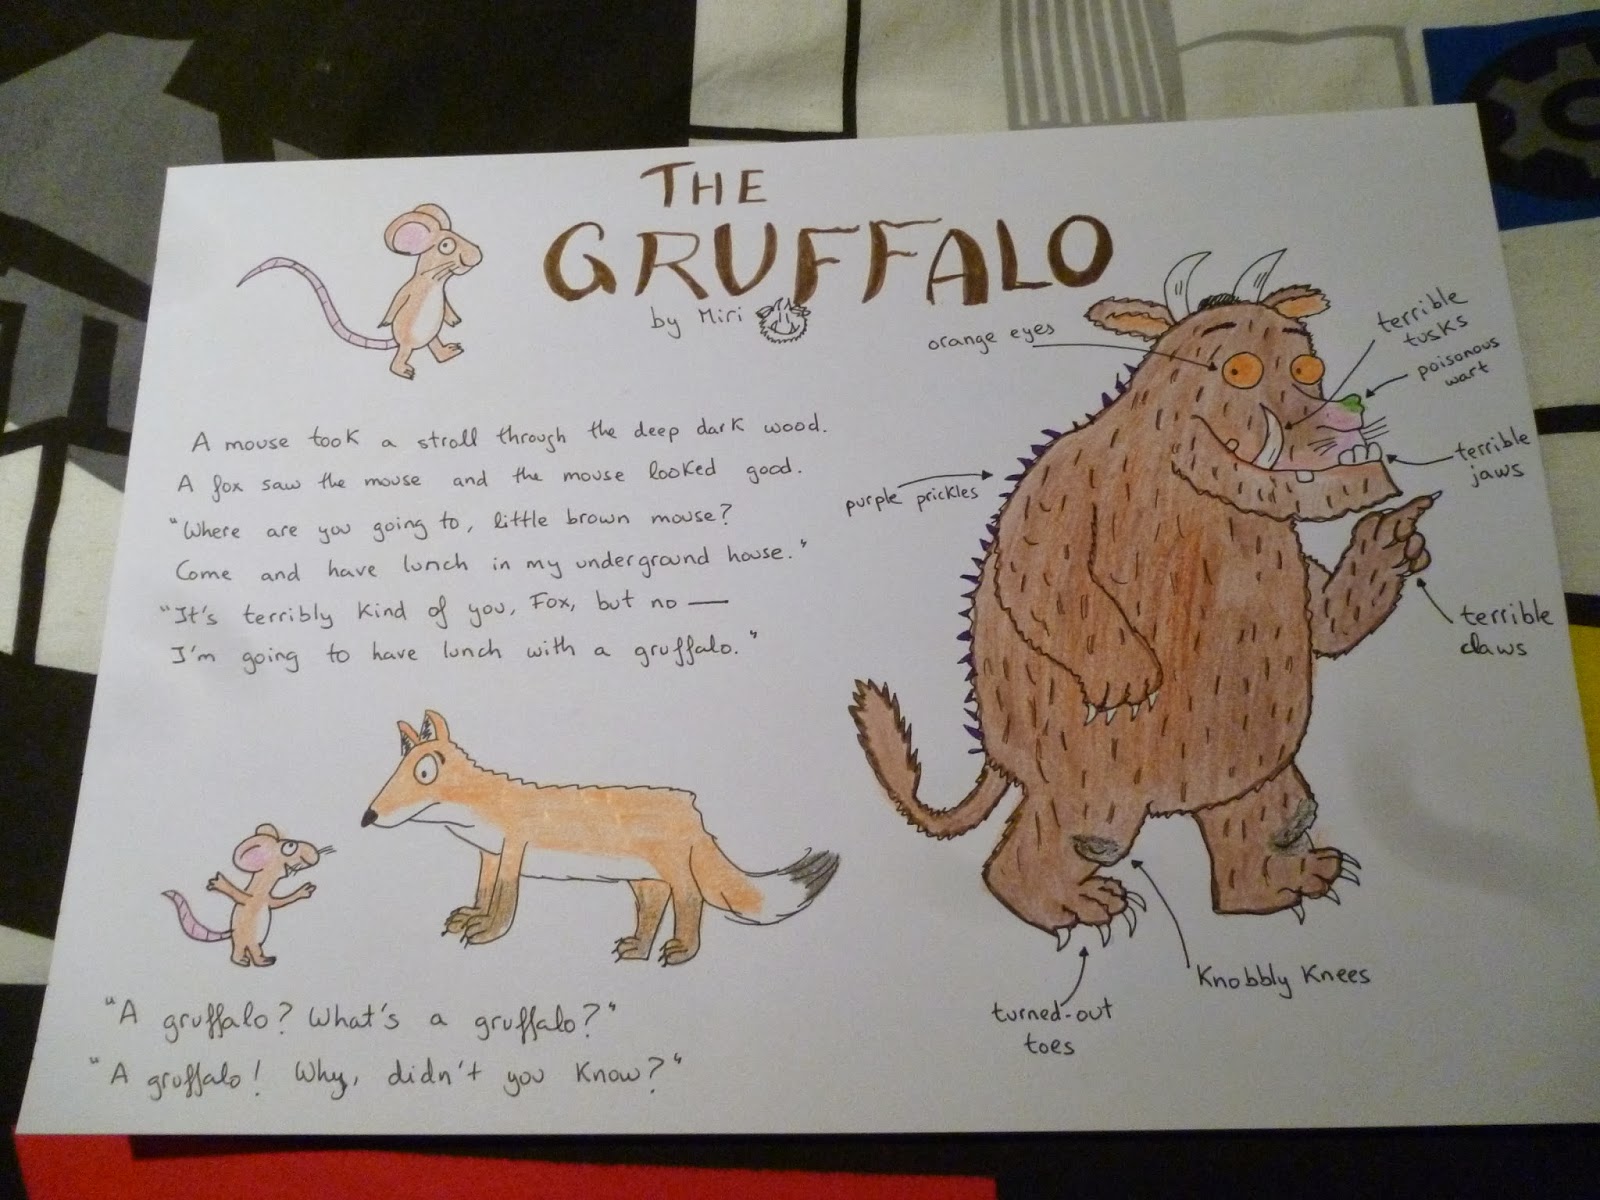 THE
GRUFFALO
by Miri
A mouse took a stroll through the deep dark wood.
A fox saw the mouse and the mouse looked good.
"Where are you going to, little brown mouse?
Come and have lunch in my underground house."
"It's terribly kind of you, Fox, but no —
I'm going to have lunch with a gruffalo."
"A gruffalo? What's a gruffalo?"
"A gruffalo! Why, didn't you know?"
orange eyes
terrible
tusks
poisonous
wart
terrible
jaws
purple prickles
terrible
claws
Knobbly Knees
turned-out
toes